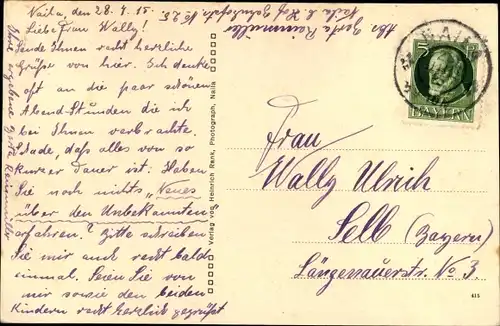 Naila, den 28.4.15.
Liebe Frau Wally!
Sende Ihnen recht herzliche
Grüsse von hier. Ich denke
oft an die paar schönen
Abend-Stunden die ich
bei Ihnen verbrachte.
Schade, daß alles von so
kurzer Dauer ist. Haben
Sie noch nichts "Neues
über den Unbekannten"
erfahren? Bitte schreiben
Sie mir auch recht bald
einmal. Seien Sie von
mir sowie den beiden
Kindern recht herzlich gegrüßt
Ihre ergebene
Abs.
Naila b. Hof Bahnhofstr. No 25
Verlag von Heinrich Rank, Photograph, Naila
NAILA
5
BAYERN
Frau
Wally Ulrich
Selb (Bayern)
Längenauerstr. No 3.
415